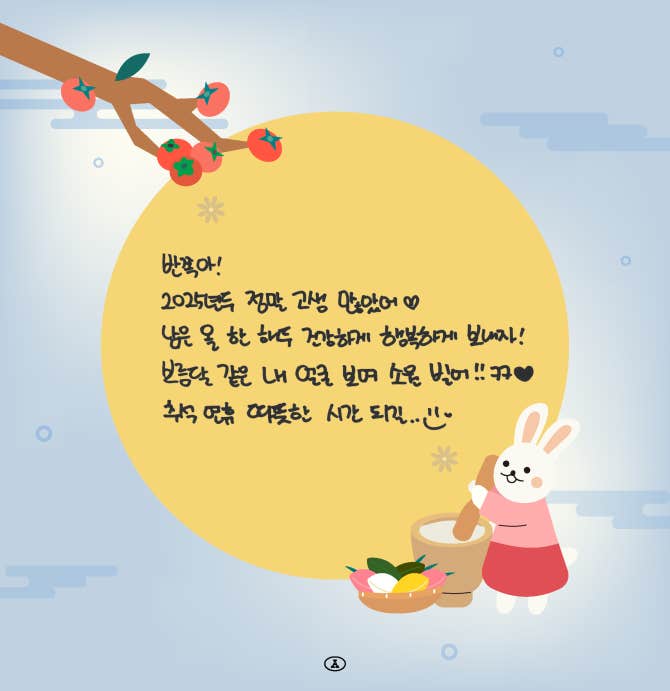 반쪽아!
2025년두 정말 고생 많았어♡
남은 올 한 해두 건강하게 행복하게 보내자!
보름달 같은 내 얼굴 보며 소원 빌어!! ㅋㅋ♥
추석 연휴 따뜻한 시간 되길..